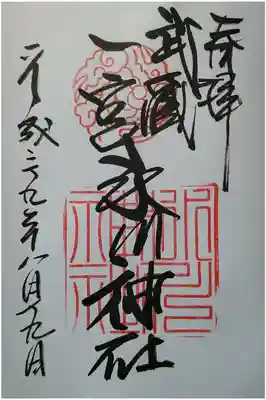 奉拝
武蔵
一宮氷川神社
平成二九年八月十九日